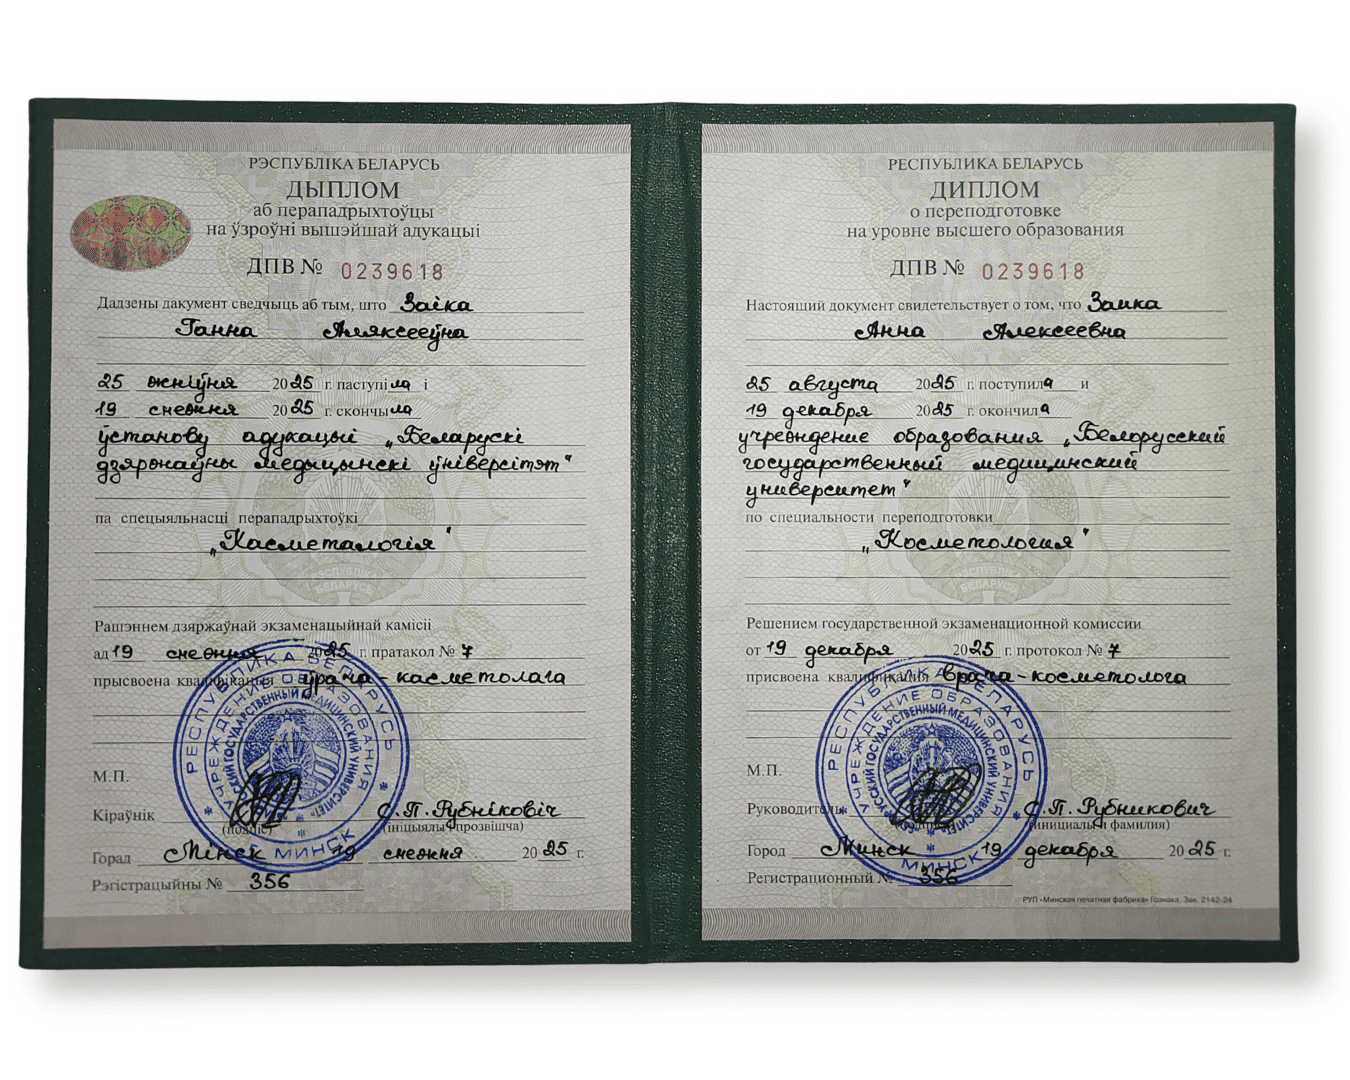 РЭСПУБЛІКА БЕЛАРУСЬ
ДЫПЛОМ
аб перападрыхтоўцы
на ўзроўні вышэйшай адукацыі
ДПВ № 0239618
Дадзены дакумент сведчыць аб тым, што Заіка
Ганна Аляксееўна
25 жніўня 2025 г. паступіла і
19 снежня 2025 г. скончыла
ўстанову адукацыі „Беларускі
дзяржаўны медыцынскі ўніверсітэт"
па спецыяльнасці перападрыхтоўкі
„Касметалогія"
Рашэннем дзяржаўнай экзаменацыйнай камісіі
ад 19 снежня 2025 г. пратакол № 7
прысвоена кваліфікацыя ўрача-касметолага
М.П.
Кіраўнік С.П.Рубніковіч
(подпіс) (ініцыялы і прозвішча)
Горад Мінск 19 снежня 2025 г.
Рэгістрацыйны № 356
РЕСПУБЛИКА БЕЛАРУСЬ
УЧРЕЖДЕНИЕ ОБРАЗОВАНИЯ
ГОСУДАРСТВЕННЫЙ МЕДИЦИНСКИЙ УНИВЕРСИТЕТ
МИНСК
РЕСПУБЛИКА БЕЛАРУСЬ
ДИПЛОМ
о переподготовке
на уровне высшего образования
ДПВ № 0239618
Настоящий документ свидетельствует о том, что Заика
Анна Алексеевна
25 августа 2025 г. поступила и
19 декабря 2025 г. окончила
учреждение образования „Белорусский
государственный медицинский
университет"
по специальности переподготовки
„Косметология"
Решением государственной экзаменационной комиссии
от 19 декабря 2025 г. протокол № 7
присвоена квалификация врача-косметолога
М.П.
Руководитель С.П.Рубникович
(инициалы и фамилия)
Город Минск 19 декабря 2025 г.
Регистрационный № 356
РУП «Минская печатная фабрика» Гознака. Зак. 2142-24
РЕСПУБЛИКА БЕЛАРУСЬ
УЧРЕЖДЕНИЕ ОБРАЗОВАНИЯ
ГОСУДАРСТВЕННЫЙ МЕДИЦИНСКИЙ УНИВЕРСИТЕТ
МИНСК